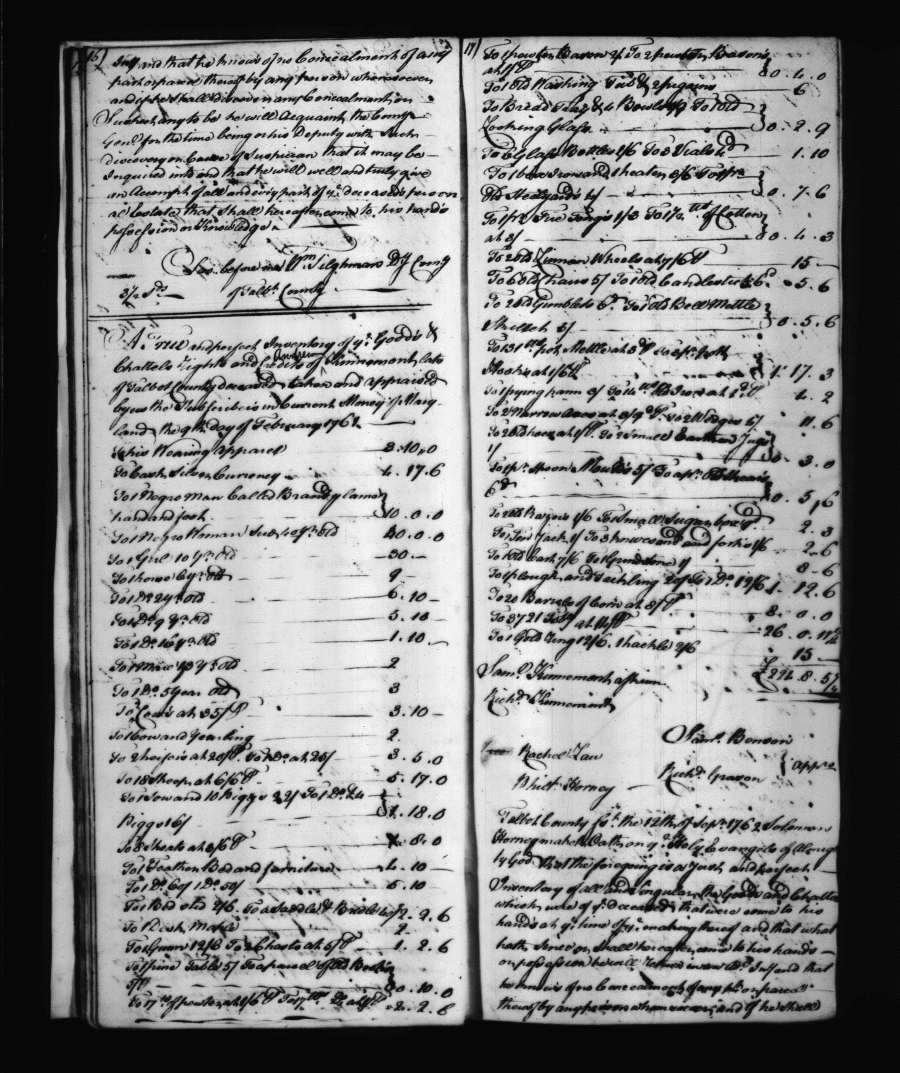 16)
Inv and that he knows of no Concealment of any
part or parcel thereof by any person whomsoever
and if he shall discover any Concealment or
Suspect any to be he will Acquaint the Comy
Genl for the time being or his Deputy with Such
discovery or Cause of Suspicion that it may be
Inquired into and that he will well and truly give
an Accompt of all and every part of ye deceaseds person
al Estate that shall hereafter come to his hands
possession or Knowledge
Swo. before me Wm Tilghman Dy Comy
of Talbt County
A True and perfect Inventory of ye Goods &
Chattels rights and Credits of Andrew Kinnemont late
of Talbot County deceased taken and appraised
by us the Subscribers in Current Money of Mary
land the 9th day of February 1761
To his Wearing apparel 3.10.0
To Cash Silver Currency 4.17.6
To 1 Negro Man Called Brandy lame
hand and foot 10.0.0
To 1 Negro Woman yrs old 40.0.0
To 1 Girl 10 yrs old 30
To 1 horse 6 yrs old 9
To 1 Do 24 yrs old 6.10
To 1 Do 9 yrs old 5.10
To 1 Do 16 yrs old 1.10
To 1 Mare 13 yrs old 2
To 1 Do 5 Year old 3
To Cows at 35/ 3.10
To 1 Cow and yearling 2
To 2 heifers at 20/ To 1 Do at 25/ 3.5.0
To 18 Sheep at 6/6 5.17.0
To 1 Sow and 10 Piggs 22/ To 1 Do & 4
Piggs 16/ 1.18.0
To Shoats at 8.0
To 1 Feather Bed and furniture 4.10
To 1 Do 60/ 1 Do 50/ 5.10
To 1 Bed old 2/6 To a Saddle & Bridle 2.2.6
To Desk 2
To 1 Gunn 12/6 To 2 Chests at 5/ 1.2.6
To 1 pine Table 5/ To a parcel of old Books
5/ 0.10.0
To 17 of pewter at 1/6 To 17 Do at 2.2.6
17)
To 1 pewter Bason 2/ To 2 pewter Basons
at 1/ 0.4.0
To 1 old Washing Tub & 2 piggins 6
To Bread Tray & 4 Bowls To 1 old
Looking Glass 0.2.9
To 5 Glass Bottles 1/6 To 3 Vials 4d 1.10
To 1 box iron and heaters To 1 pr
Old Stealyards 4/ 0.7.6
To 1 pr Fire Tongs 1/3 To of Cotton
at 3/ 0.4.3
To 2 old Linnen Wheels at 7/6 15
To 5 old Chairs 5/ To 1 old Candlestick 6d 5.6
To 2 old Gumblets 6d To 1 old Bell Mettle
Skillet 5/ 0.5.6
To 131 lb pot Mettle at To 2 pr both
Hooks at 1/6 1.17.3
To 1 frying pann 3/ To 14 lb Old Iron at 1d 4.2
To 2 Narrow Axes at To 2 Wedges 6/ 11.6
To 2 old hoes at 1/ To 2 Small Earthen Jugs
1/ 3.0
To 1 pr Spoon Moulds 5/ To 2 pr
6d 0.5.6
To 2 old Razors 1/6 To 1 Small Sugar box 2.3
To 1 Tin Jack 1/ To 3 knives and and forks 1/6 2.6
To 1 old Cart 7/6 To 1 Grindstone 1/ 8.6
To 1 plough and Tackling 20/ To 1 Do 12/6 1.12.6
To 20 Barrels of Corn at 8/ 8.0.0
To 3721 Toby at 14/ 26.0.11½
To 1 Gold Ring 12/6 1 hackle 2/6 15
£224.8.5½
Saml Kinnemont
Richd Kinnemont
Saml Benson
Richd Grason
Apprs
Rachel Law
Horney
Talbot County Ss. the 12th of Sepr 1762 Solomon
Horney maketh Oath on ye Holy Evangels of Almigh
ty God that the foregoing is a Just and perfect
Inventory of all and Singular the Goods and Chattes
which were of ye deceased that were come to his
hands at ye time of ye making thereof and that what
hath Since or shall hereafter come to his hands
or possession he will return in an Inv and that
he knows of no Concealment of any part or parcell
thereof by any person whomsoever and if he shall